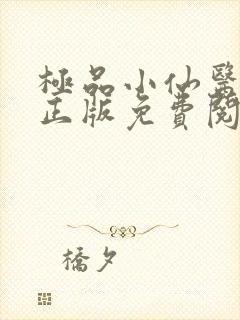 極品小仙醫
正版免費閱
橋夕